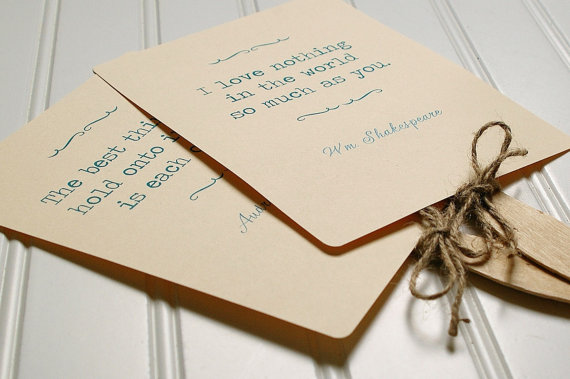 I love nothing
in the world
so much as you.
Wm Shakespeare
The best
hold onto
is each